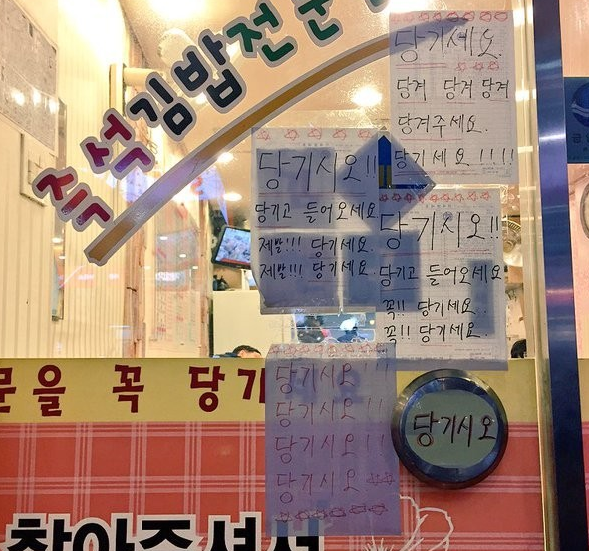 즉석김밥전문
당기세요.
당겨 당겨 당겨
당겨주세요.
당기세요!!!!
당기시오!!
당기고 들어오세요
제발!!! 당기세요.
제발!!! 당기세요.
당기시오!!
당기고 들어오세요
꼭!! 당기세요.
꼭!! 당기세요.
문을 꼭 당기
당기시오!!
당기시오!!
당기시오!!
당기시오
당기시오
찾아주셔서